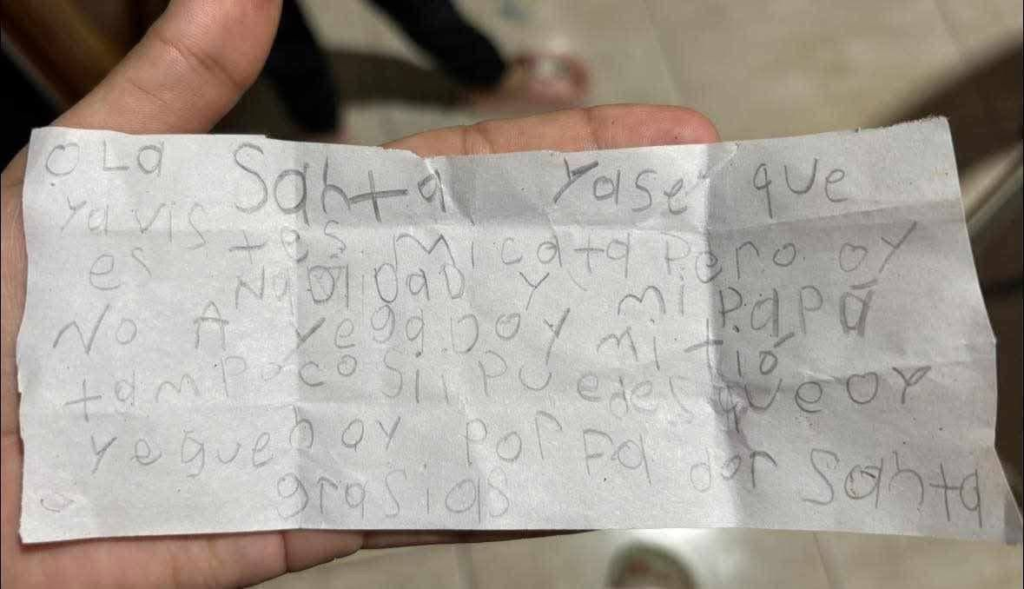 OLa Santa Yase que
Ya vistes mi cata pero oy
es NaBidaD Y mi papá
No A YegaDo Y mi tió
tampoco Sii pu edes que oY
Yeguen oy por Fa dor Santa
grasias